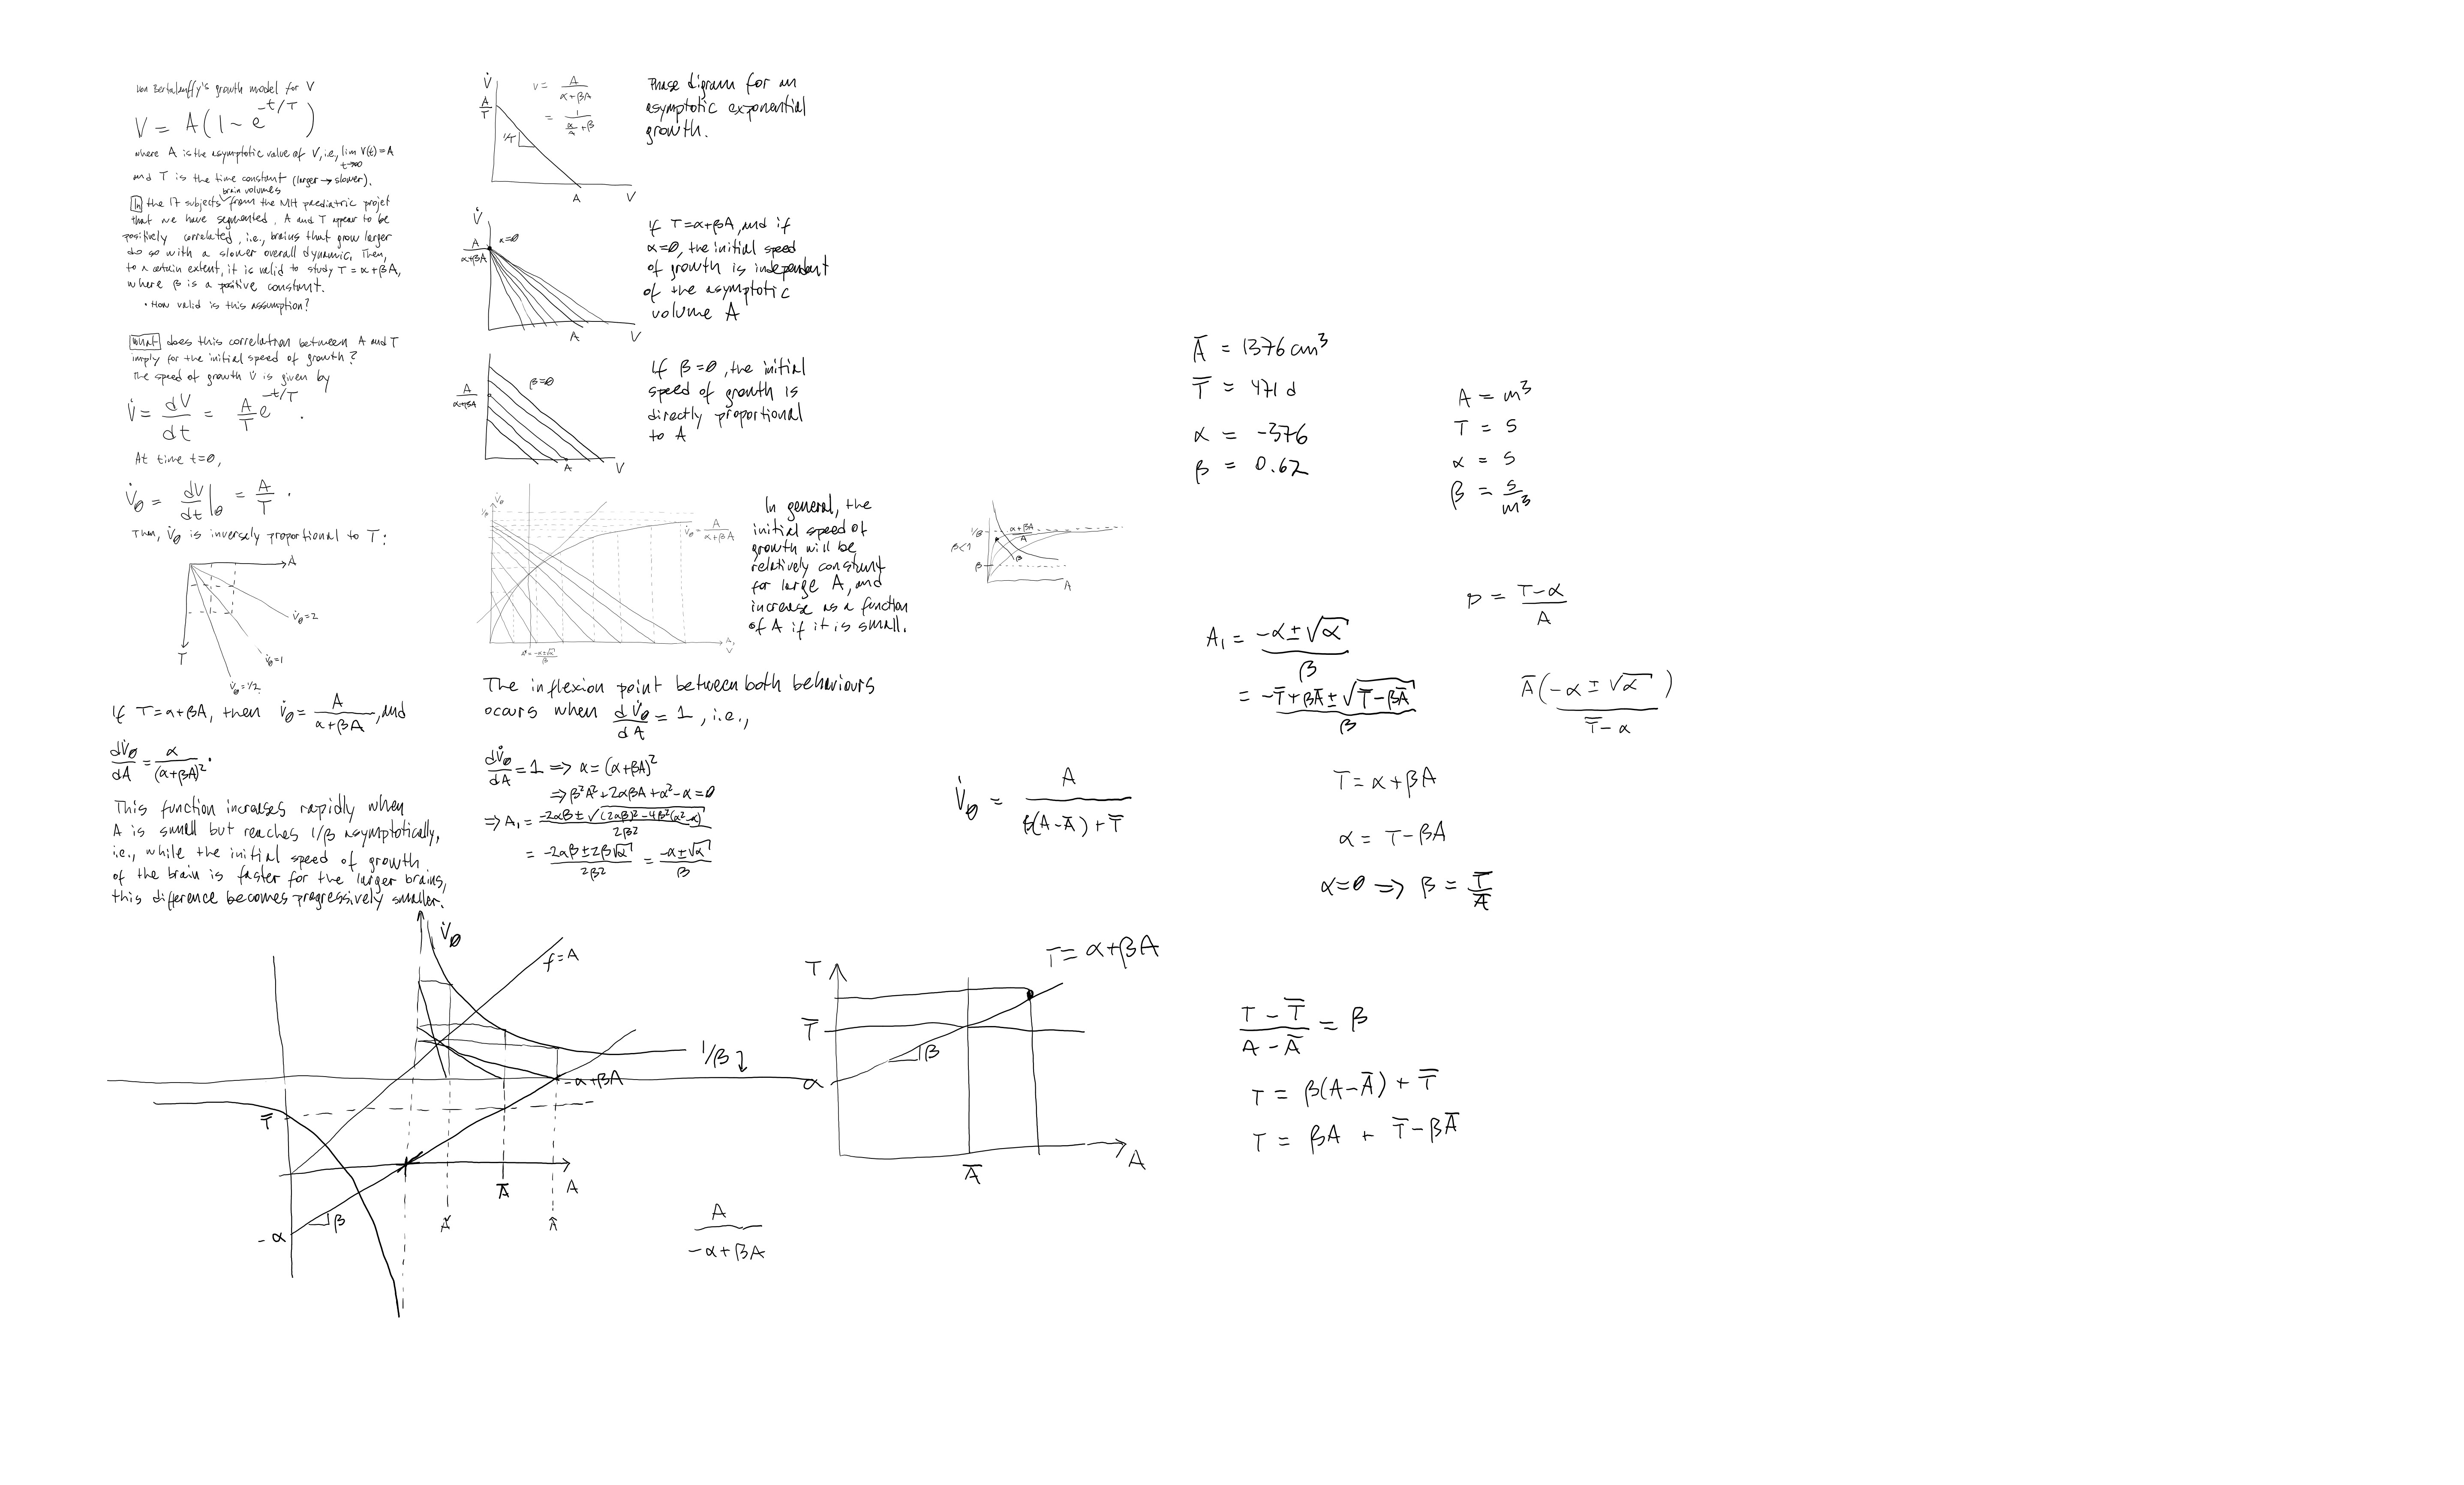 von Bertalanffy's growth model for V
V = A(1 - e^{-t/T})
where A is the asymptotic value of V, i.e., lim_{t→∞} V(t) = A
and T is the time constant (larger → slower).
brain volumes
In the 17 subjects from the MH paediatric projet
that we have segmented, A and T appear to be
positively correlated, i.e., brains that grow larger
do so with a slower overall dynamic. Then,
to a certain extent, it is valid to study T = α+βA,
where β is a positive constant.
• How valid is this assumption?
What does this correlation between A and T
imply for the initial speed of growth?
The speed of growth V̇ is given by
V̇ = dV/dt = A/T e^{-t/T}.
At time t=0,
V̇0 = dV/dt|0 = A/T.
Then, V̇0 is inversely proportional to T:
A
V̇0=2
T
V̇0=1
V̇0=1/2
If T=α+βA, then V̇0 = A/(α+βA), and
dV̇0/dA = α/(α+βA)².
This function increases rapidly when
A is small but reaches 1/β asymptotically,
i.e., while the initial speed of growth
of the brain is faster for the larger brains,
this difference becomes progressively smaller.
V̇
A/T
1/T
A
V
v = A/(α+βA)
= 1/(α/A + β)
Phase digram for an
asymptotic exponential
growth.
V̇
A/(α+βA)
α=0
A
V
If T=α+βA, and if
α=0, the initial speed
of growth is independent
of the asymptotic
volume A
A/(α+βA)
β=0
A
V
If β=0, the initial
speed of growth is
directly proportional
to A
V̇0
1/β
V̇0 = A/(α+βA)
A,
V
A* = (-α±√α)/β
In general, the
initial speed of
growth will be
relatively constant
for large A, and
increase as a function
of A if it is small.
The inflexion point between both behaviours
ocurs when dV̇0/dA = 1, i.e.,
dV̇0/dA = 1 => α = (α+βA)²
=> β²A² + 2αβA + α² - α = 0
=> A1 = (-2αβ ± √((2αβ)² - 4β²(α²-α)))/2β²
= (-2αβ ± 2β√α)/2β² = (-α±√α)/β
1/β
β<1
β
α+βA/A
β
A
V̇0
f=A
1/β
-α+βA
T̄
-α
β
Ǎ
Ā
Â
A
A/(-α+βA)
T
T̄
α
β
T = α+βA
Ā
A
V̇0 = A/(β(A-Ā)+T̄)
Ā = 1376 cm³
T̄ = 471 d
α = -376
β = 0.62
A = m³
T = s
α = s
β = s/m³
β = (T-α)/A
A1 = (-α±√α)/β
= (-T̄+βĀ±√(T̄-βĀ))/β
Ā(-α±√α)/(T̄-α)
T = α+βA
α = T-βA
α=0 => β = T̄/Ā
(T-T̄)/(A-Ā) = β
T = β(A-Ā) + T̄
T = βA + T̄-βĀ